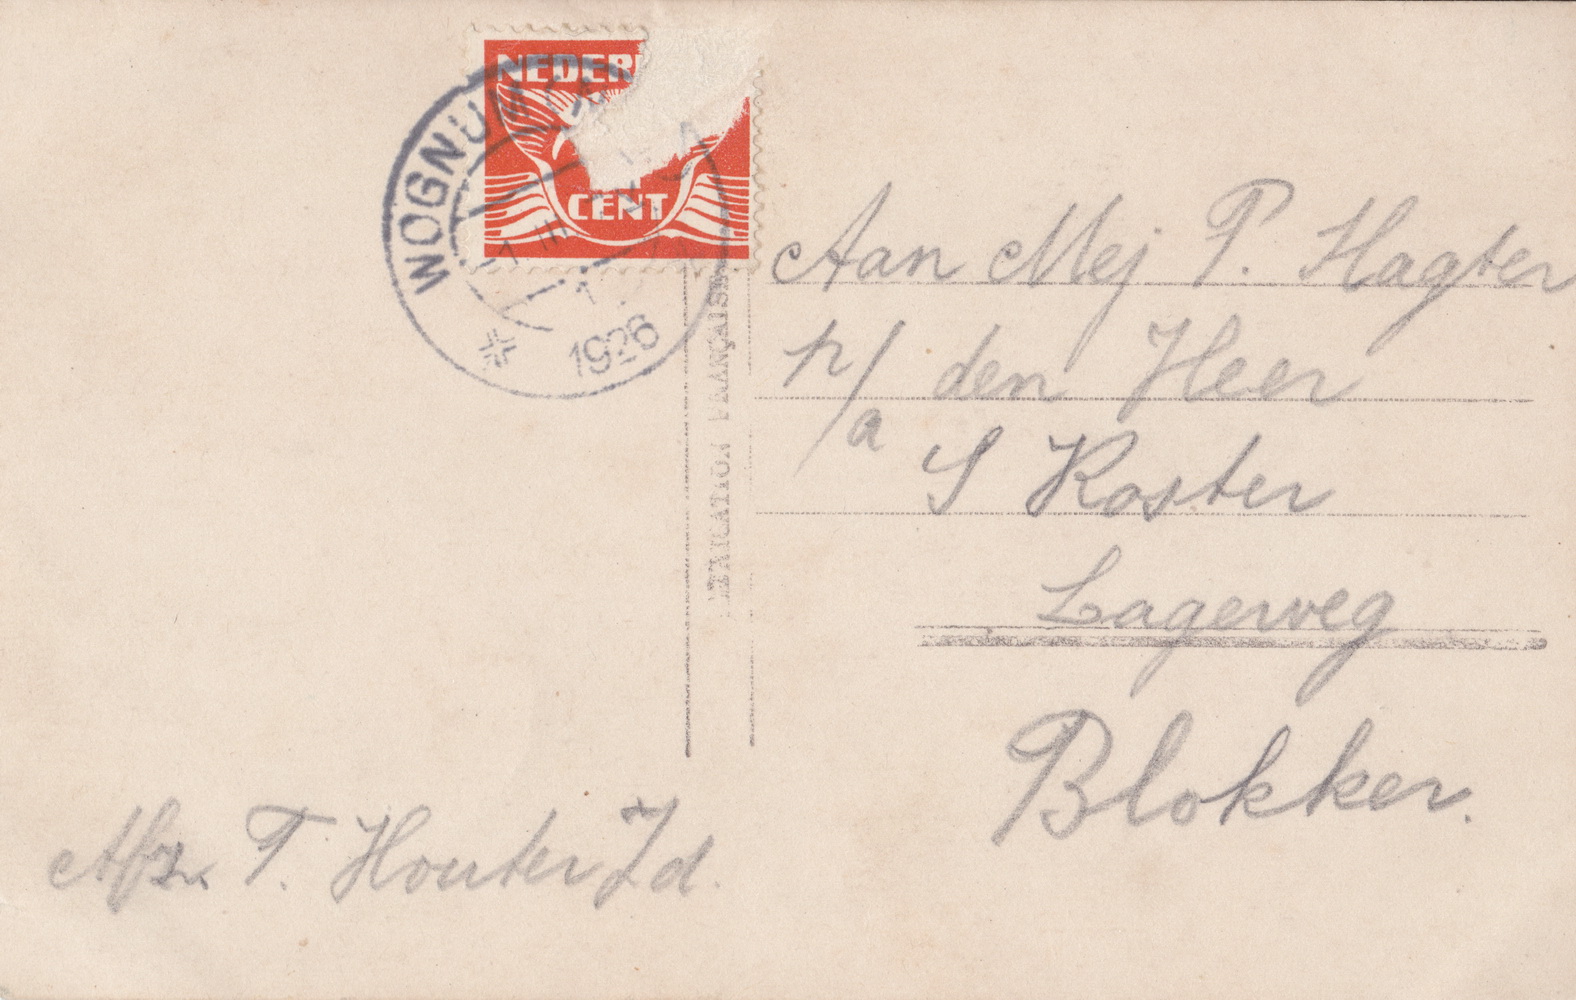 NEDER
CENT
WOGNUM
1 III
1926
FABRICATION FRANÇAISE
Aan Mej P. Hagter
p/a den Heer
S Koster
Lageweg
Blokker.
Afz. T. Houter Jd.